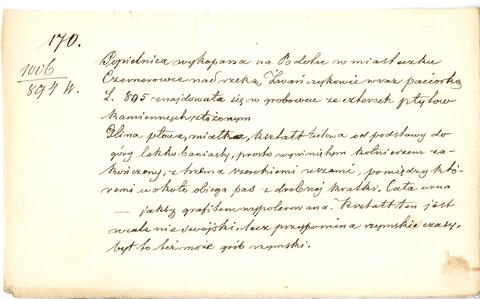 170.
1006
894 W.
Popielnica wykopana na Podolu w miasteczku
Czernerowce nad rzeką Zwańczykowie wraz paciorką
L. 895 znajdowała się w grobowcu ze czterech płytów
kamiennych złożonym
Glina płowa, miałka, kształt od podstawy do
góry lekko baniasty, prosto wywiniętym kołnierzem za-
kończony, z trzema szerokiemi uszami, pomiędzy któ-
remi w koło obiega pas z drobnej kratki. Cała urna
— jakby grafitem wypolerowana. Kształt ten jest
wcale nie swojski, lecz przypomina rzymskie czasy,
był to też może grób rzymski.